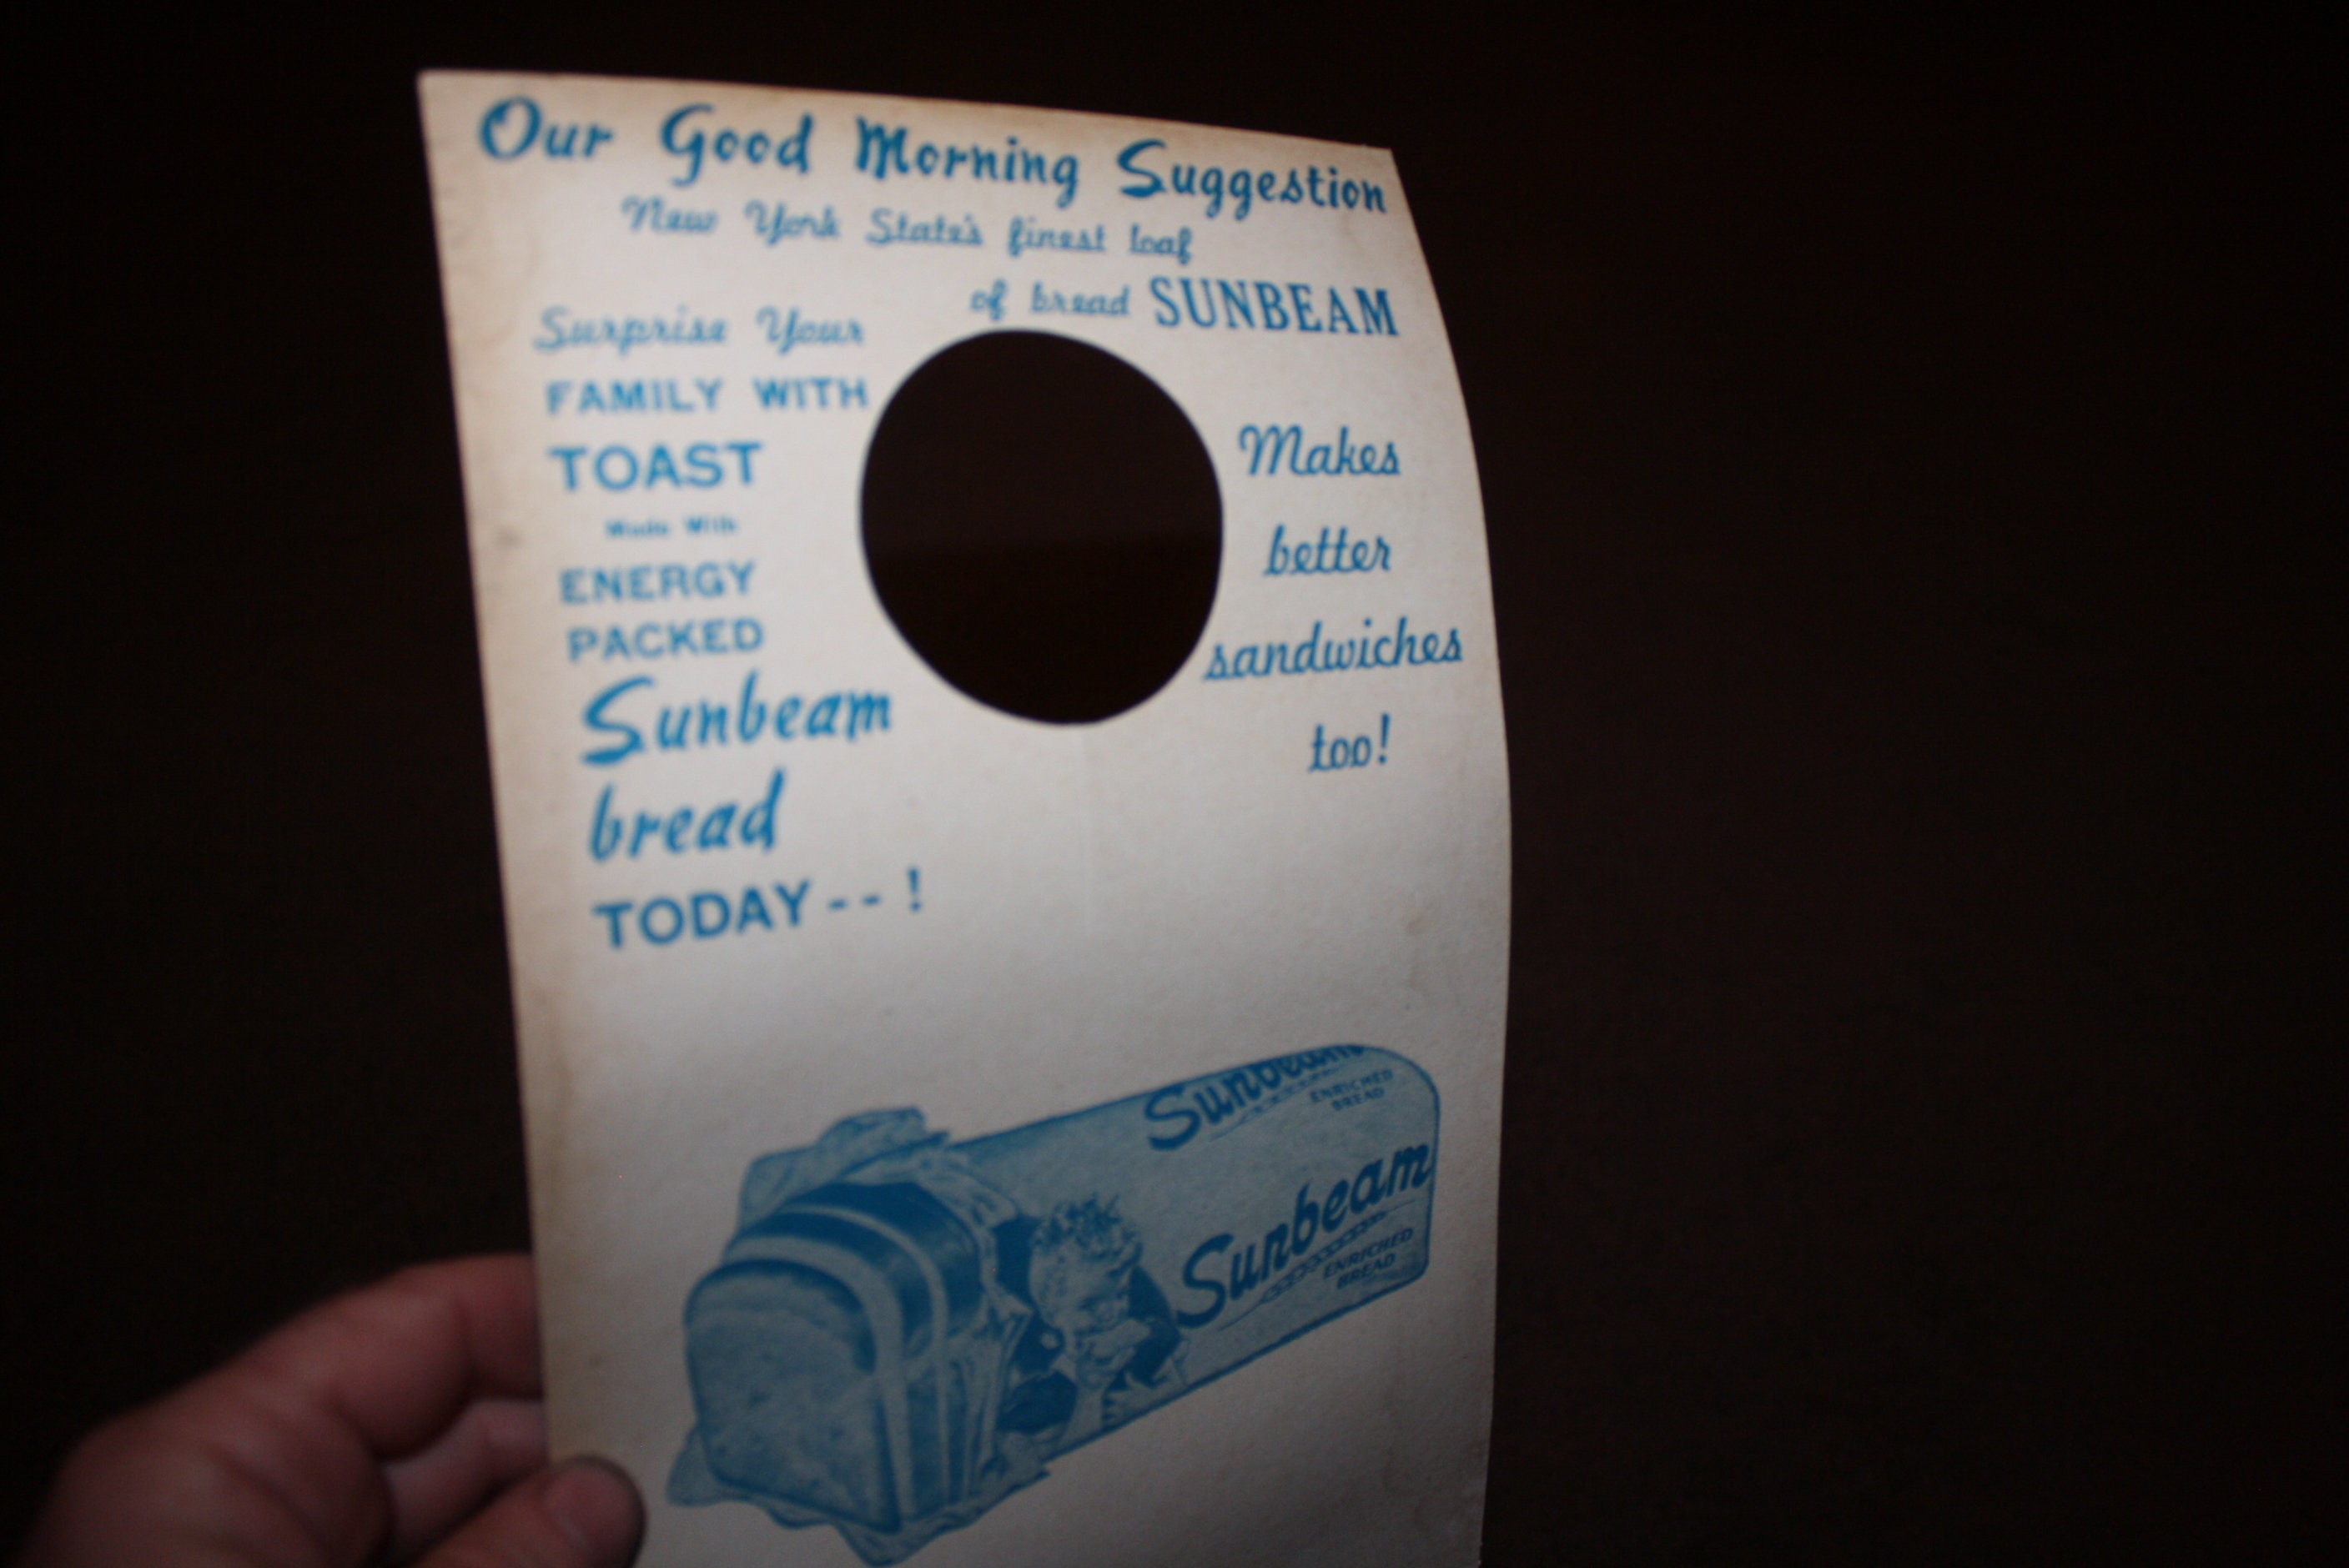 Our Good Morning Suggestion
New York State's finest loaf
of bread SUNBEAM
Surprise Your
FAMILY WITH
TOAST
Made With
ENERGY
PACKED
Sunbeam
bread
TODAY -- !
Makes
better
sandwiches
too!
Sunbeam
ENRICHED
BREAD
Sunbeam
ENRICHED
BREAD